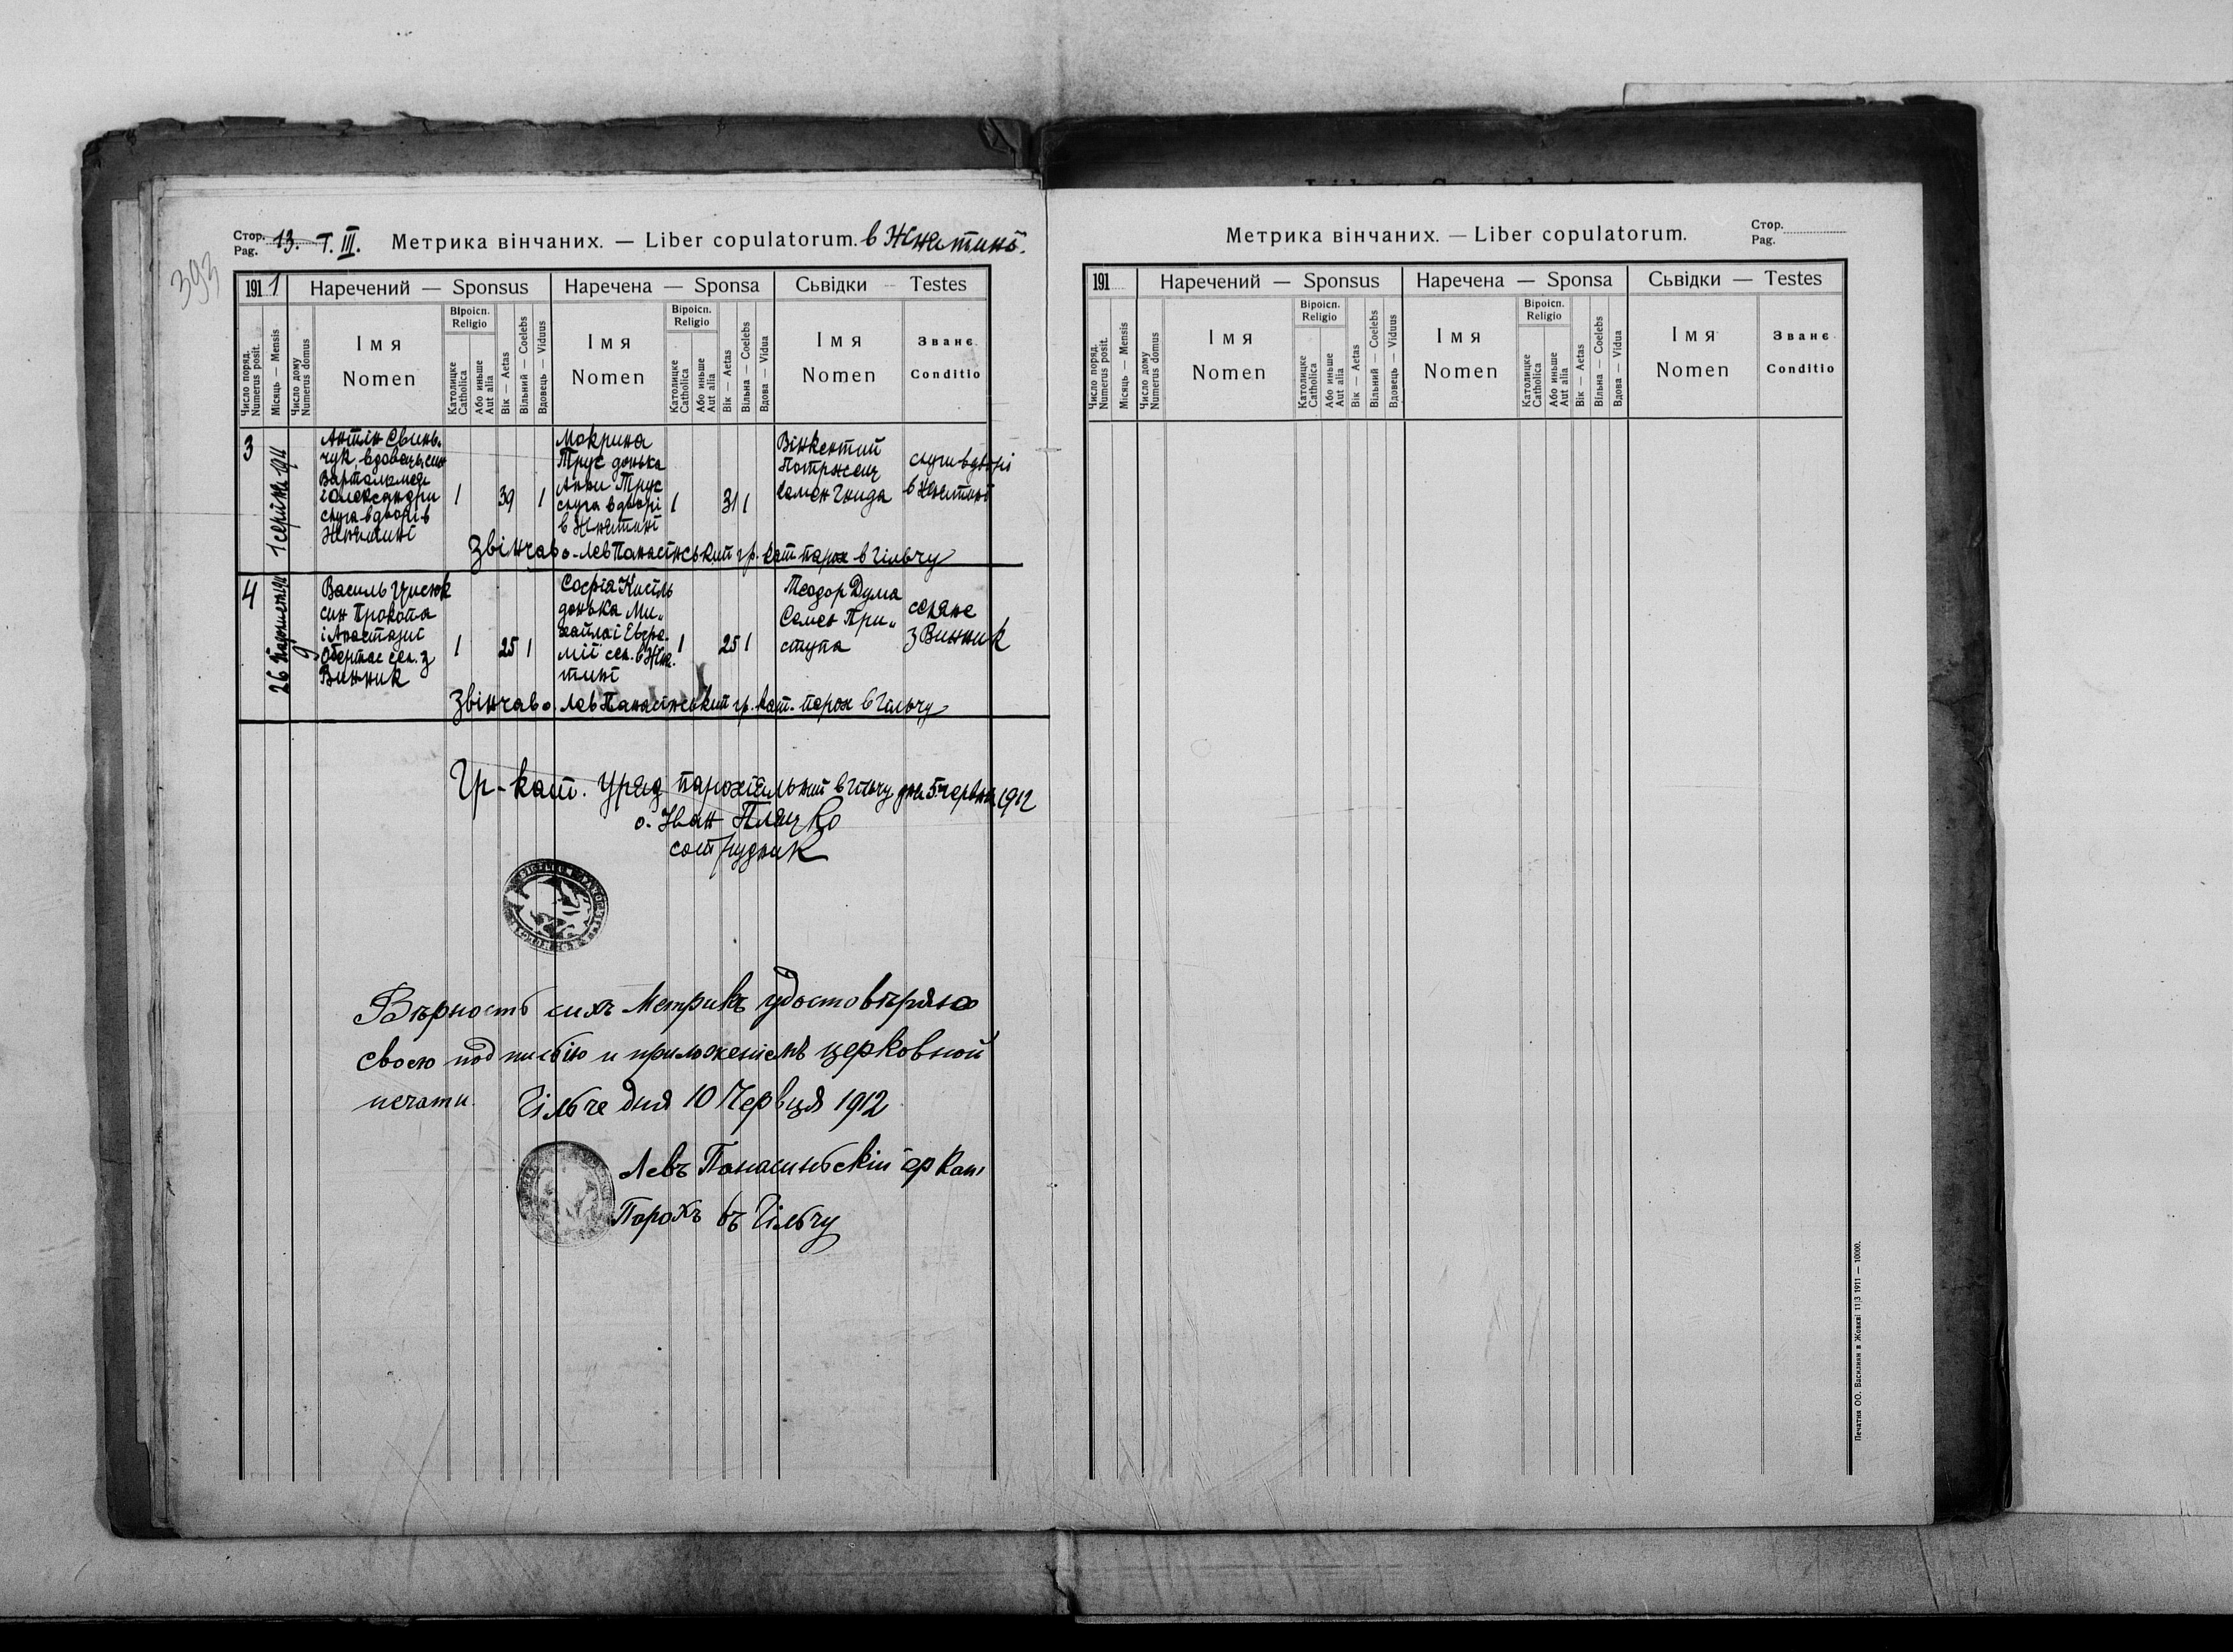 393
Стор. Pag. 13. Т. III. Метрика вінчаних. — Liber copulatorum. в Жнятині.
1911
Наречений — Sponsus
Наречена — Sponsa
Сьвідки — Testes
Число поряд. Numerus posit.
Місяць — Mensis
Число дому Numerus domus
Імя Nomen
Віроісп. Religio
Католицке Catholica
Або иньше Aut alia
Вік — Aetas
Вільний — Coelebs
Вдовець — Viduus
Імя Nomen
Віроісп. Religio
Католицке Catholica
Або иньше Aut alia
Вік — Aetas
Вільна — Coelebs
Вдова — Vidua
Імя Nomen
Званє Conditio
3
1 серпня 1911
Антін Свинь-
чук, вдовець, син
Вартоломея
і Олександри
слуга в дворі в
Жнятині
1 39 1
Мокрина
Трус донька
Анни Трус
слуга в дворі
в Жнятині
1 31 1
Вінкентий
Семен Гнида
слуги в дворі
в Жнятині
Звінчав о. Лев Панасінський гр. кат. парох в Гільчу
4
26 Падолиста 1911
9
Василь
син Прокопа
і Анастазиї
Обертас сел. з
Винник
1 25 1
Софія Кисіль
донька Ми-
хайла і Евфе-
мії сел. в Жня-
тині
1 25 1
Теодор Дума
Семен При-
ступа
селяне
з Винник
Звінчав о. Лев Панасінський гр. кат. парох в Гільчу
Гр.-кат. Уряд парохіяльний в Гільчу дня 5 червня 1912
о. Іван Пляцко
сотрудник
Вѣрность сихъ Метрикъ удостовѣряю
своею подписію и приложеніемъ церковной
печати. Гільче дня 10 Червця 1912
Левъ Панасиньскій гр кат
Парохъ въ Гільчу
Метрика вінчаних. — Liber copulatorum.
Стор. Pag.
191
Наречений — Sponsus
Наречена — Sponsa
Сьвідки — Testes
Число поряд. Numerus posit.
Місяць — Mensis
Число дому Numerus domus
Імя Nomen
Віроісп. Religio
Католицке Catholica
Або иньше Aut alia
Вік — Aetas
Вільний — Coelebs
Вдовець — Viduus
Імя Nomen
Віроісп. Religio
Католицке Catholica
Або иньше Aut alia
Вік — Aetas
Вільна — Coelebs
Вдова — Vidua
Імя Nomen
Званє Conditio
Печатня ОО. Василиян в Жовкві 11|3 1911 — 10000.